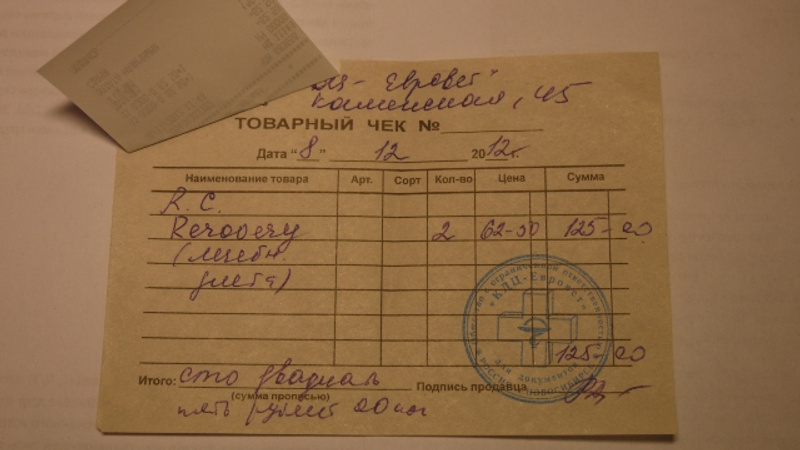 Евровет"
Каменская, 45
ТОВАРНЫЙ ЧЕК №
Дата "8" 12 2012г.
Наименование товара Арт. Сорт Кол-во Цена Сумма
R. C.
Recovery 2 62-50 125-00
(лечебн.
диета)
Общество с ограниченной ответственностью
"КДЦ-Евровет"
для документов
РОССИЯ НОВОСИБИРСК
125-00
Итого: сто двадцать Подпись продавца
(сумма прописью)
пять рублей 00 коп